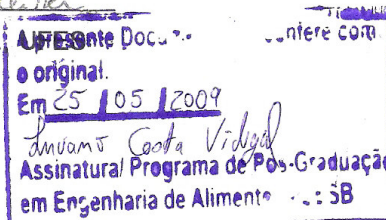 UFES
Apresente Docu confere com
o original.
Em 25 / 05 / 2009
Costa Vidigal
Assinatura/ Programa de Pós-Graduação
em Engenharia de Alimento SB